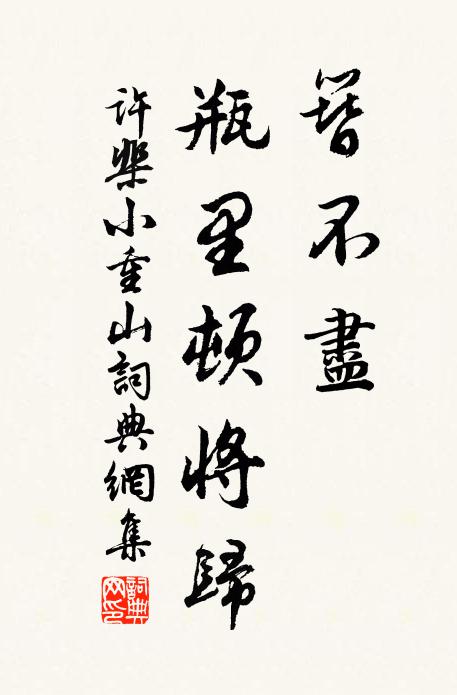 簪不盡
瓶里頓將歸
許棐小重山詞典網集
詞典網印